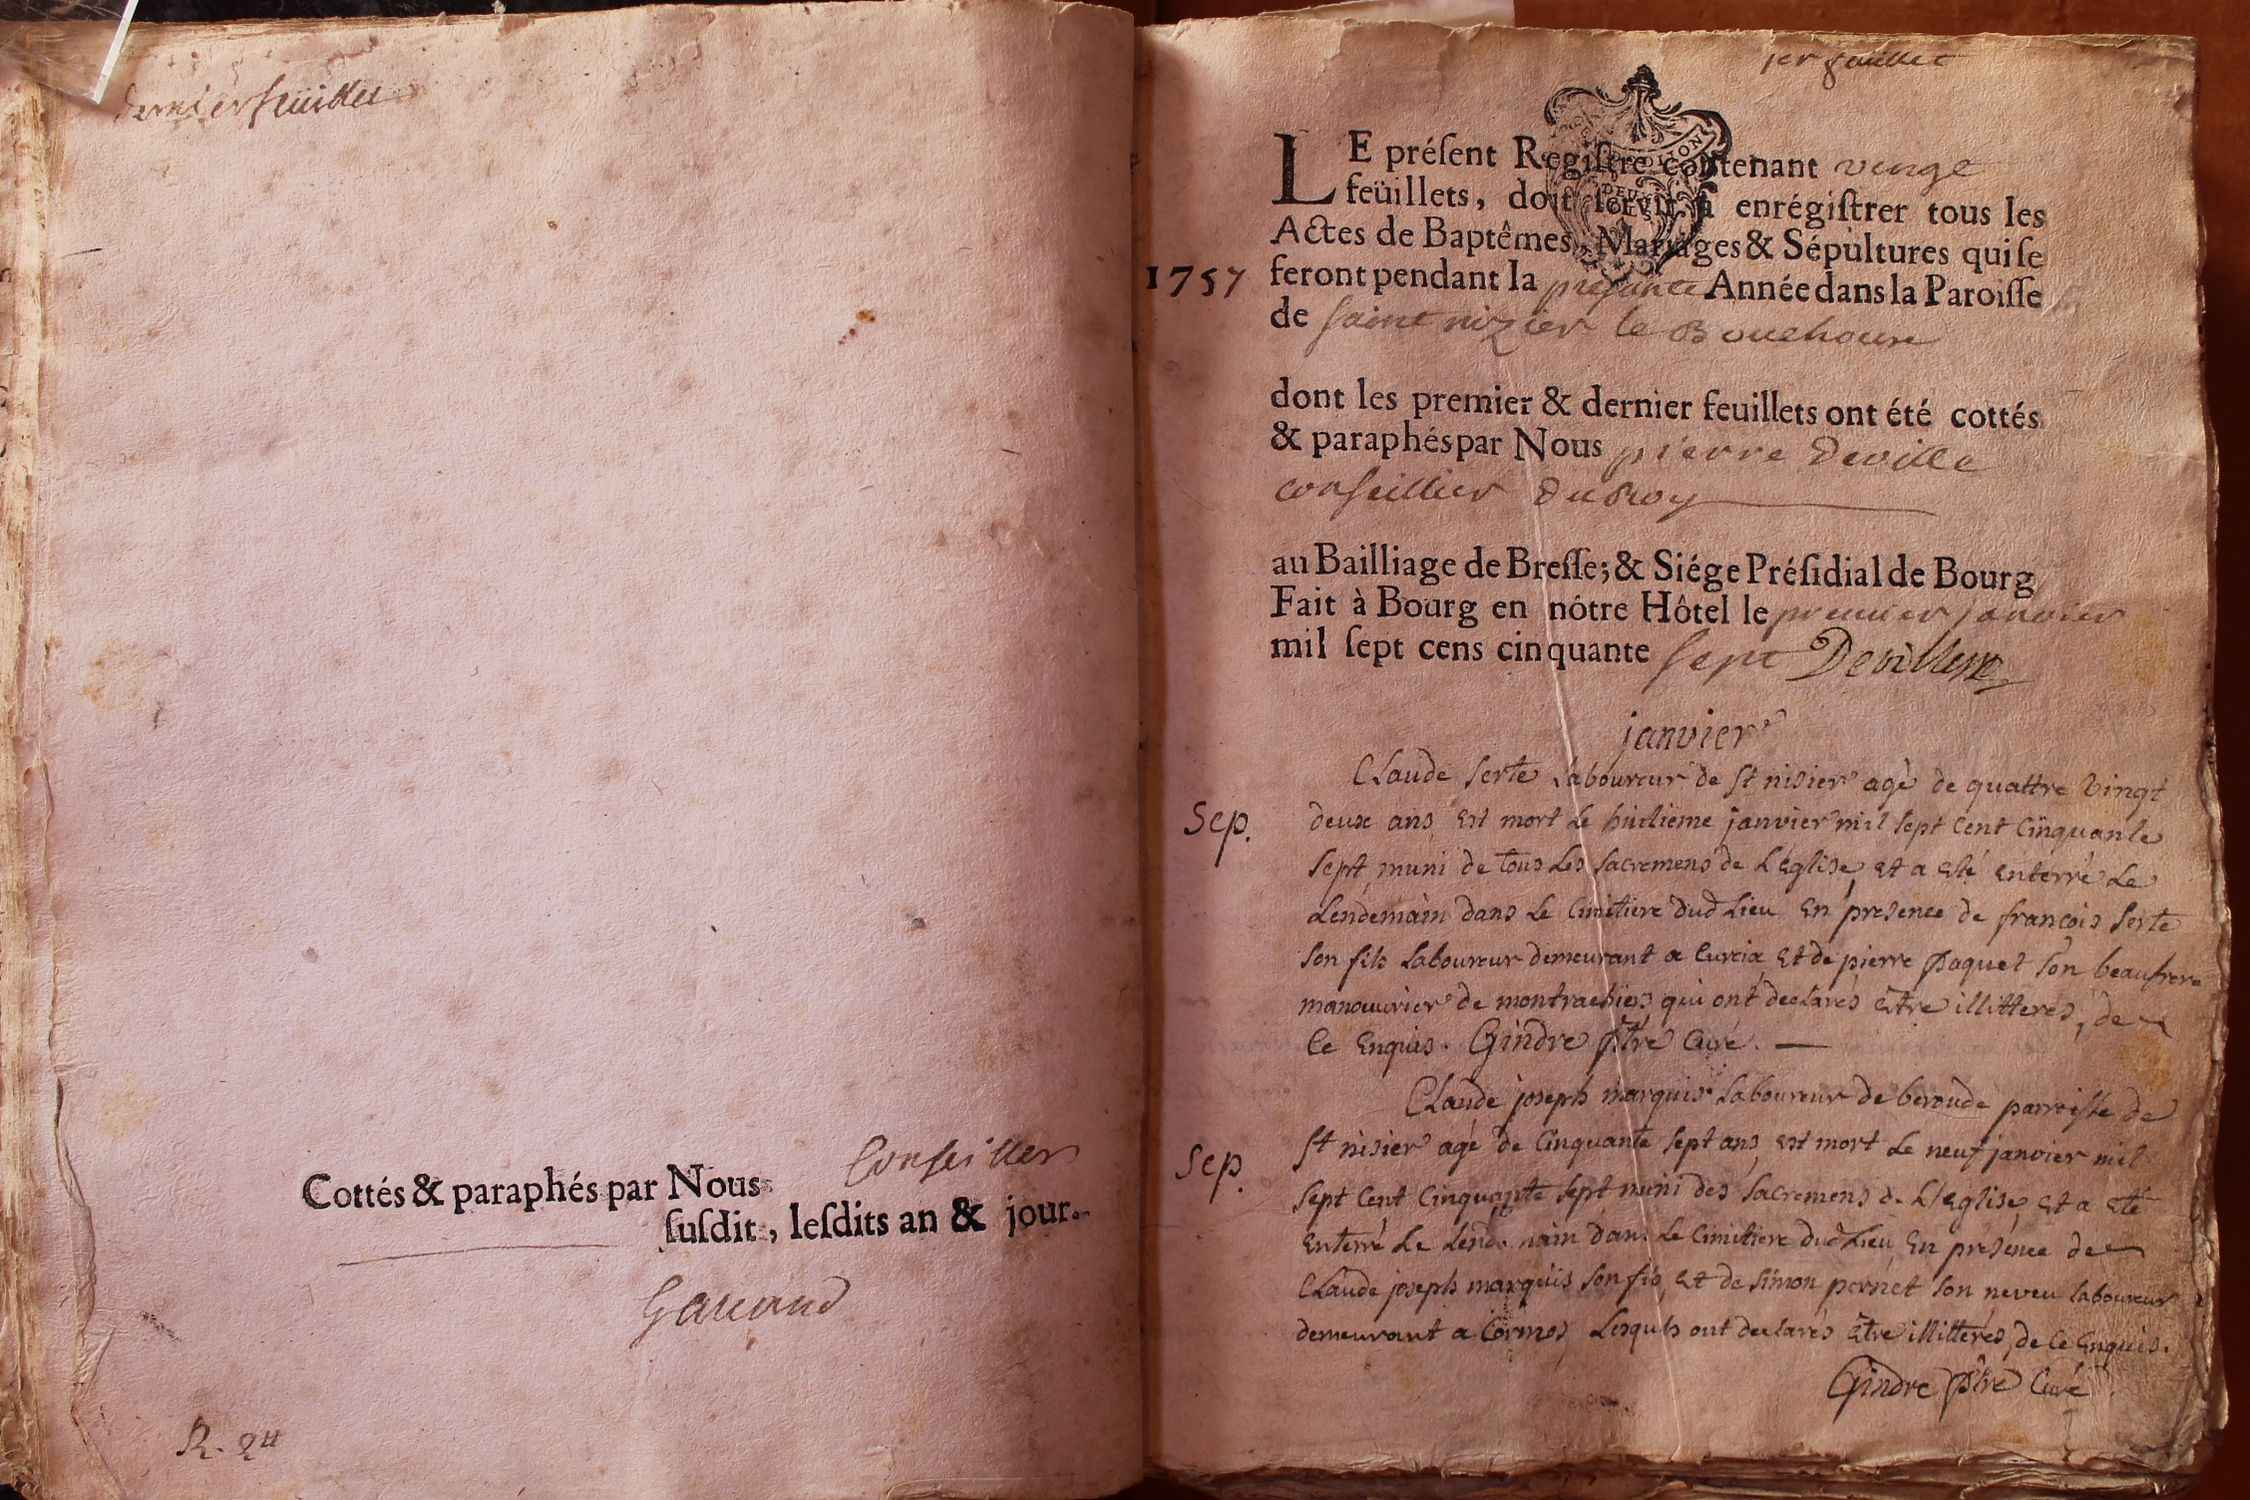 dernier feüillet
Conseiller
Cottés & paraphés par Nous
ſuſdit, leſdits an & jour.
R. 2
1er feuillet
LE préſent Regiſtre contenant vingt
feüillets, doit ſervir à enrégiſtrer tous les
Actes de Baptêmes, Mariages & Sépultures qui ſe
1757
feront pendant la presente Année dans la Paroiſſe
de saint nizier le Bouchoux
dont les premier & dernier feuillets ont été cottés
& paraphés par Nous pierre Deville
conseillier du Roy
au Bailliage de Breſſe; & Siége Préſidial de Bourg
Fait à Bourg en nôtre Hôtel le premier janvier
mil ſept cens cinquante sept Deville
janvier
Claude serte Laboureur de st nisier agé de quattre vingt
Sep.
deux ans est mort Le huitieme janvier mil sept cent cinquante
sept muni de tous Les sacremens de L'église, et a eté enterré Le
Lendemain dans Le cimitiere dud Lieu En presence de françois serte
son fils Laboureur demeurant a curcia et de pierre paquet son beaufrere
manouvrier de qui ont declarés être illitteres, de
ce enquis. Gindre ptre curé.
Claude joseph marquis Laboureur de beroude parroisse de
Sep.
st nisier agé de cinquante sept ans est mort Le neuf janvier mil
sept cent cinquante sept muni des sacremens de L'église, et a eté
enterré Le Lendemain dans Le cimitiere dud Lieu En presence de
Claude joseph marquis son fis, et de simon pernet son neveu laboureur
demeurant a cormos Lesquels ont declarés être illitteres, de ce enquis.
Gindre ptre curé